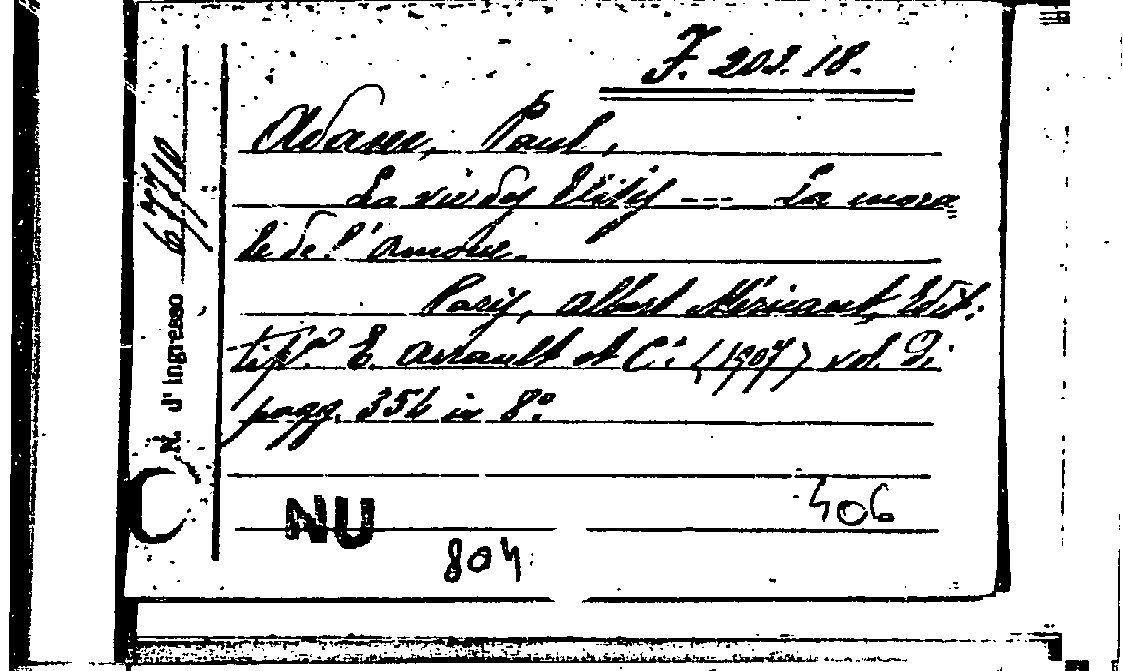 J. 203. 18.
Adam, Paul,
La vie des Élites --- La mora
le de l'Amour.
Paris, Albert Méricant, Edit:
tip.ª E. Arrault et C.ⁱ (1907) vol. di
pagg. 356 in 8º
N. d'Ingresso 67710
NU
804
406